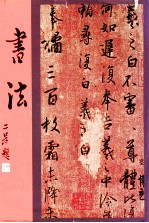 羲之白不審尊體比
何如遲復奉告羲之中冷無
賴尋復白羲之白
奉橘三百枚霜未降未
書法